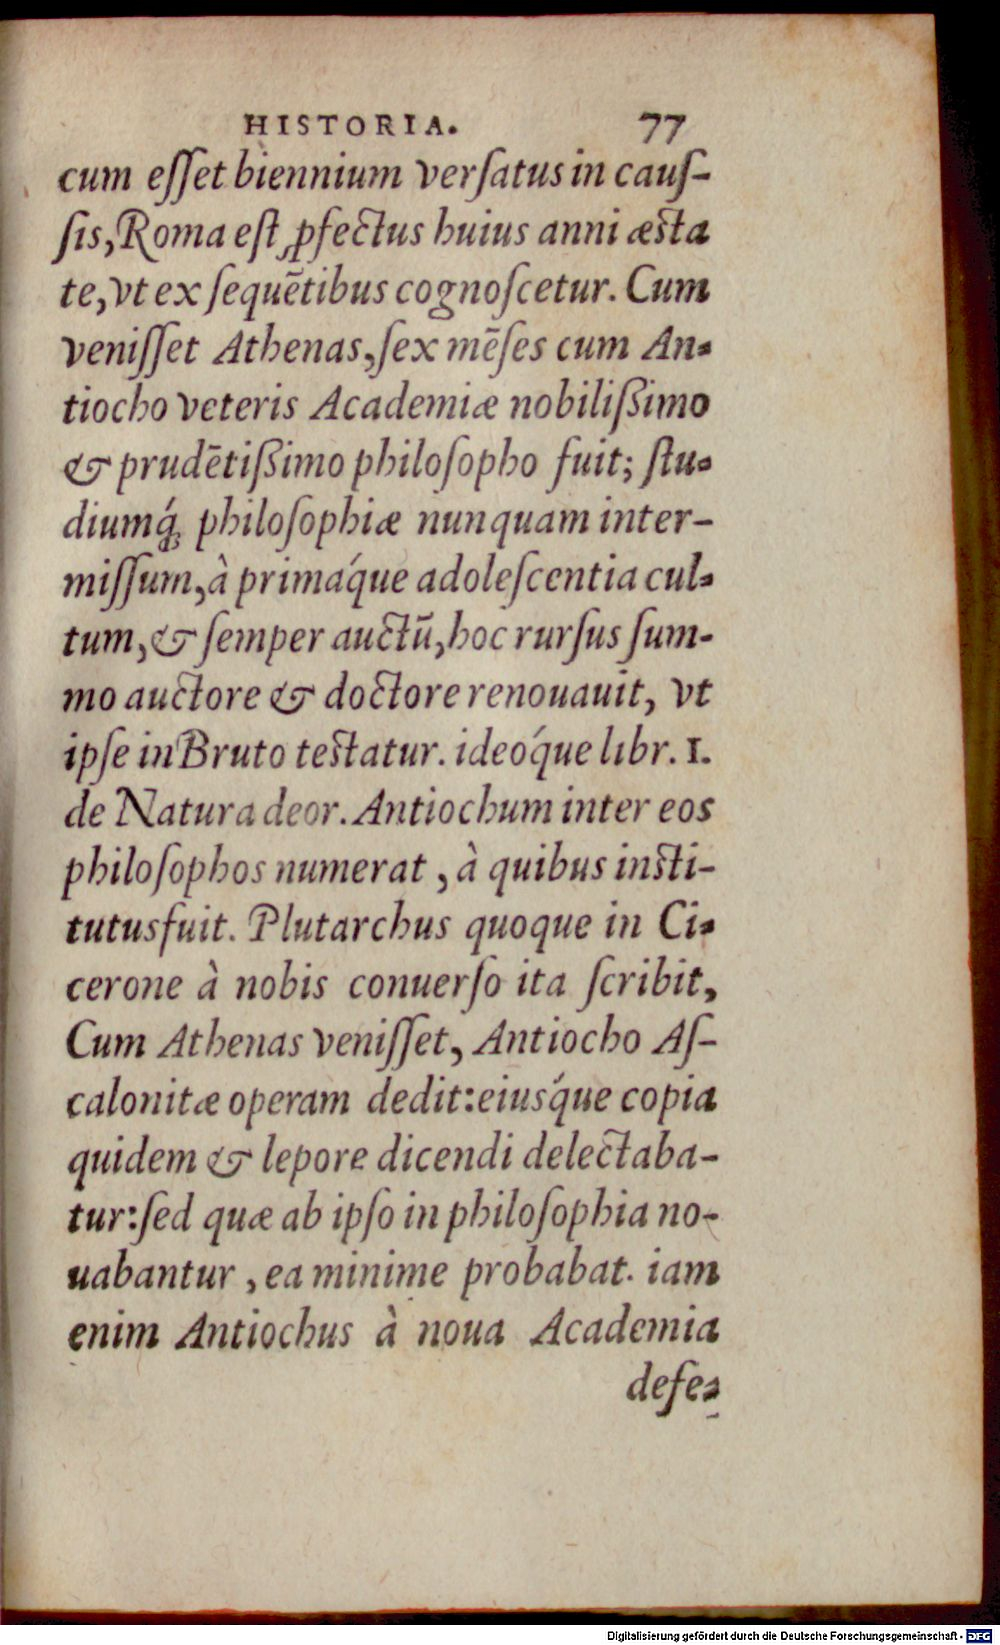 HISTORIA. 77
cum eſſet biennium verſatus in cauſ-
ſis, Roma eſt ꝓfectus huius anni æsta
te, vt ex ſequẽtibus cognoſcetur. Cum
veniſſet Athenas, ſex mẽſes cum An-
tiocho veteris Academiæ nobilißimo
& prudẽtißimo philoſopho fuit; ſtu-
diumq́; philoſophiæ nunquam inter-
miſſum, à primaq́ue adoleſcentia cul-
tum, & ſemper auctũ, hoc rurſus ſum-
mo auctore & doctore renouauit, vt
ipſe in Bruto testatur. ideoq́ue libr. 1.
de Natura deor. Antiochum inter eos
philoſophos numerat, à quibus insti-
tutus fuit. Plutarchus quoque in Ci-
cerone à nobis conuerſo ita ſcribit,
Cum Athenas veniſſet, Antiocho Aſ-
calonitæ operam dedit: eiusq́ue copia
quidem & lepore dicendi delectaba-
tur: ſed quæ ab ipſo in philoſophia no-
uabantur, ea minime probabat. iam
enim Antiochus à noua Academia
defe-
Digitalisierung gefördert durch die Deutsche Forschungsgemeinschaft - DFG